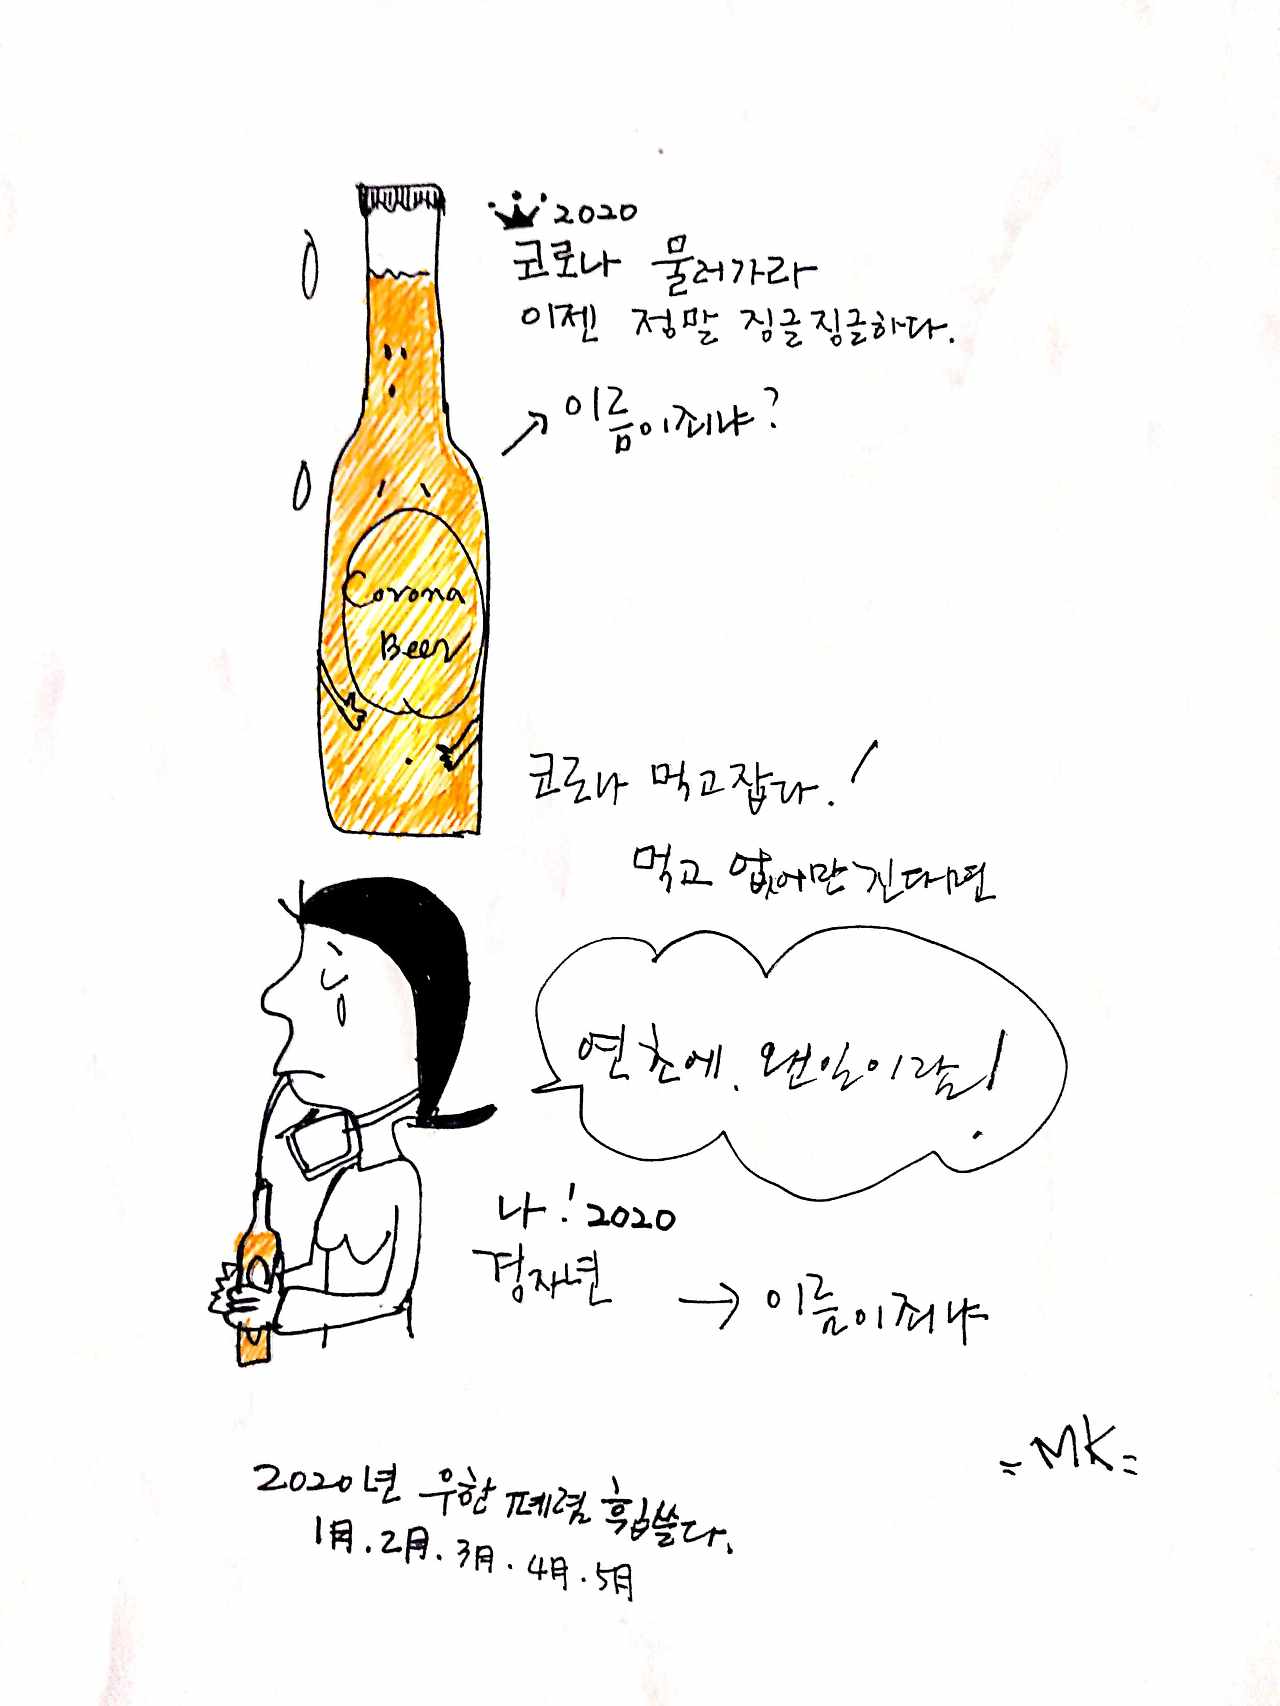 2020
코로나 물러가라
이젠 정말 징글징글하다.
→ 이름이죄냐?
Corona
Beer
코로나 먹고잡다!
먹고 없어만진다면
연초에. 왠일이람!
나! 2020
경자년 → 이름이죄냐
=MK=
2020년 우한 폐렴 휩쓸다.
1月.2月.3月.4月.5月